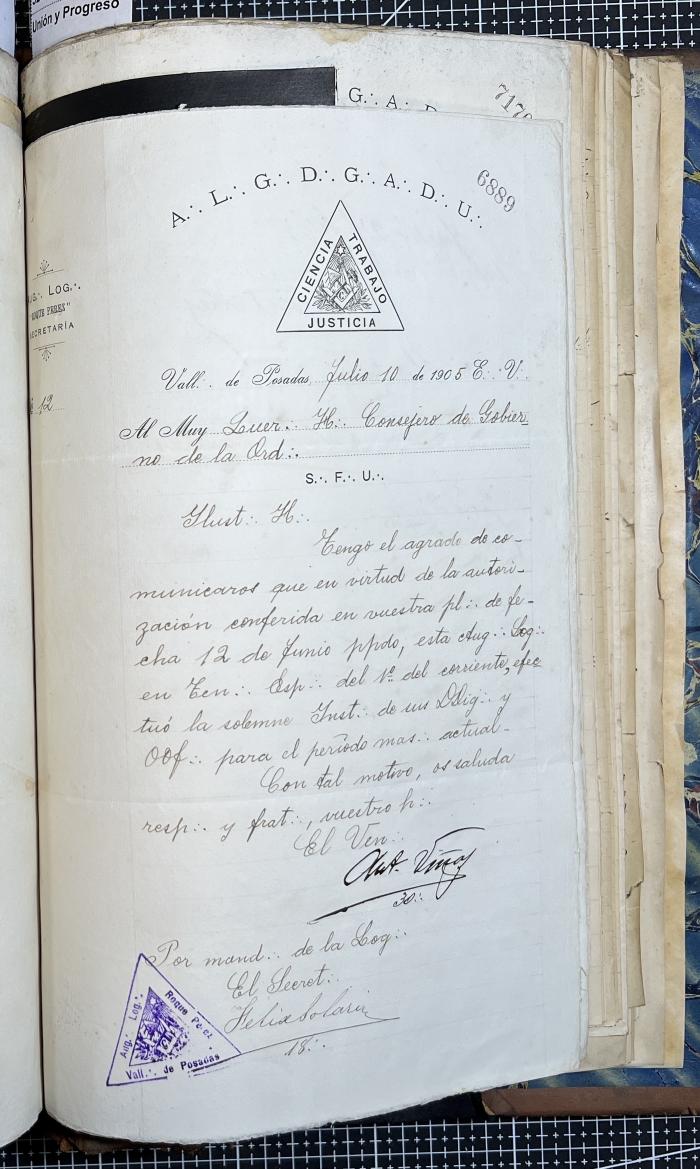 Unión y Progreso
G∴ A∴ D
717
A∴ L∴ G∴ D∴ G∴ A∴ D∴ U∴
6889
CIENCIA TRABAJO
JUSTICIA
UG∴ LOG∴
"ROQUE PEREZ"
SECRETARÍA
12
Vall∴ de Posadas, Julio 10 de 1905 E∴ V∴
Al Muy Luer∴ H∴ Consejero de Gobier
no de la Ord∴
S∴ F∴ U∴
Ilust∴ H∴
Tengo el agrado de co-
municaros que en virtud de la autori-
zación conferida en vuestra pl∴ de fe-
cha 12 de Junio ppdo, esta Aug∴ Log∴
en Ten∴ Esp∴ del 1º del corriente, efec
tuó la solemne Inst∴ de sus DDig∴ y
OOf∴ para el período mas∴ actual-
Con tal motivo, os saluda
resp∴ y frat∴, vuestro h∴
El Ven∴
Ant. Viñas
30∴
Por mand∴ de la Log∴
El Secret∴
Felix Solari
18∴
Aug∴ Log∴ Roque Perez
Vall∴ de Posadas